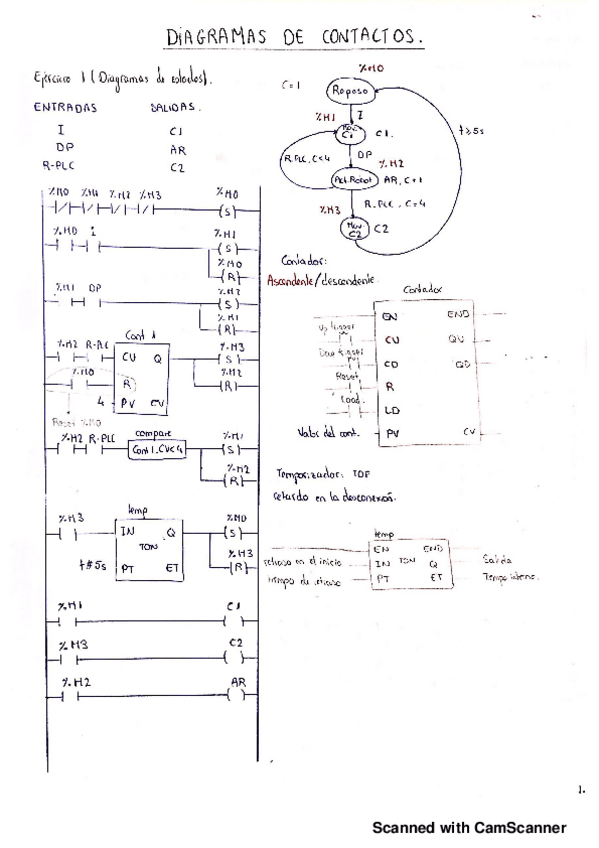 DIAGRAMAS DE CONTACTOS.
Ejercicio 1 (Diagramas de estados).
ENTRADAS SALIDAS.
I C1
DP AR
R-PLC C2
%M0
C=1 Reposo
%M1 I
C1 C1.
R.PLC, C<4 DP t≥5s
%M2
Act.Robot AR, C=+1
R.PLC. C=4
%M3
Mov C2 C2
%M0 %M1 %M2 %M3 %M0
(S)
%M0 I %M1
(S)
%M0
(R)
%M1 DP %M2
(S)
%M1
(R)
Cont 1
%M2 R-PLC CU Q %M3
(S)
%M0 R %M2
(R)
4 PV CV
Reset %M0
%M2 R-PLC compare %M1
Cont1.CV<4 (S)
%M2
(R)
temp
%M3 IN Q %M0
(S)
TON %M3
t#5s PT ET (R)
%M1 C1
%M3 C2
%M2 AR
Contador:
Ascendente/descendente.
Contador
EN END
Up trigger CU QU
trigger CD QD
Reset R
Load. LD
Valor del cont. PV CV
Temporizador: TOF
retardo en la desconexión.
temp
EN END
retraso en el inicio IN TON Q Salida
tiempo de retraso PT ET Tiempo interno.
1.
Scanned with CamScanner